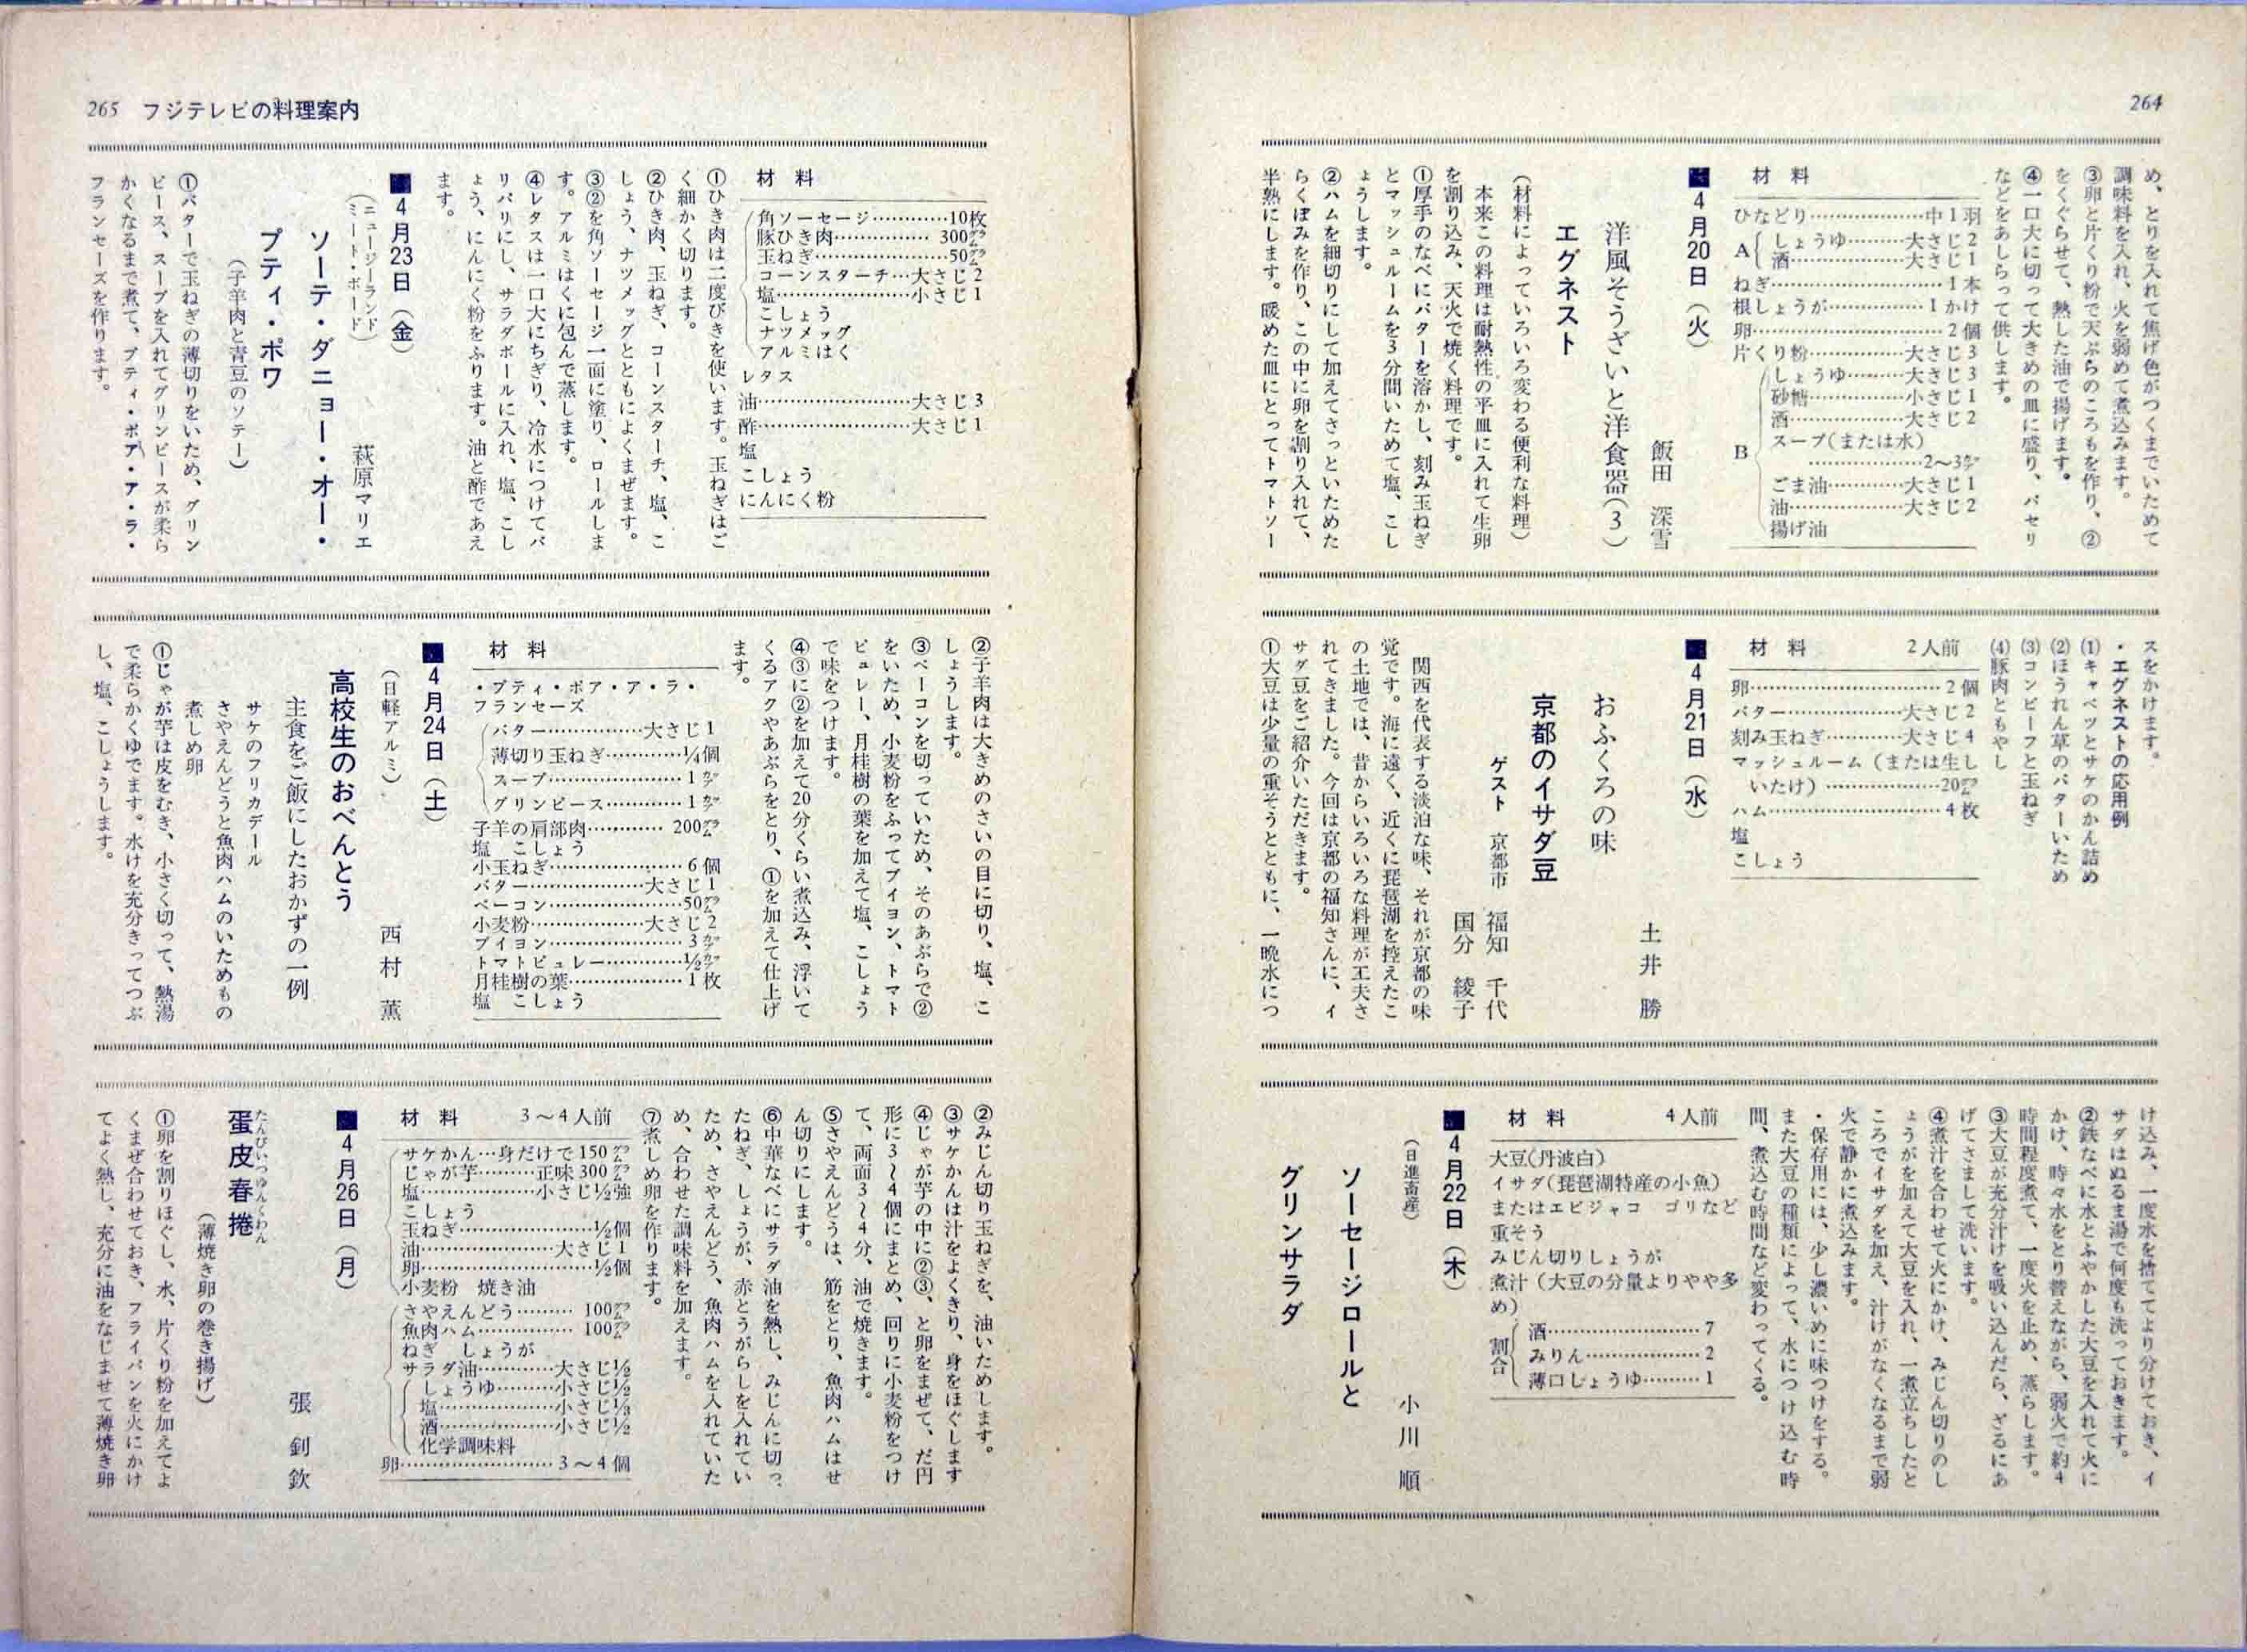 264
め、とりを入れて焦げ色がつくまでいためて
調味料を入れ、火を弱めて煮込みます。
③卵と片くり粉で天ぷらのころもを作り、②
をくぐらせて、熱した油で揚げます。
④一口大に切って大きめの皿に盛り、パセリ
などをあしらって供します。
材料
ひなどり……………中1羽
A
しょうゆ………大さじ2
酒……………大さじ1
ねぎ……………………1本
根しょうが……………1かけ
卵………………………2個
片くり粉……………大さじ3
B
しょうゆ………大さじ3
砂糖……………小さじ1
酒………………大さじ2
スープ(または水)
………………2〜3カップ
ごま油…………大さじ1
油………………大さじ2
揚げ油
■4月20日(火)
飯田 深雪
洋風そうざいと洋食器(3)
エグネスト
(材料によっていろいろ変わる便利な料理)
本来この料理は耐熱性の平皿に入れて生卵
を割り込み、天火で焼く料理です。
①厚手のなべにバターを溶かし、刻み玉ねぎ
とマッシュルームを3分間いためて塩、こし
ょうします。
②ハムを細切りにして加えてさっといためた
らくぼみを作り、この中に卵を割り入れて、
半熟にします。暖めた皿にとってトマトソー
スをかけます。
・エグネストの応用例
(1)キャベツとサケのかん詰め
(2)ほうれん草のバターいため
(3)コンビーフと玉ねぎ
(4)豚肉ともやし
材料 2人前
卵………………………2個
バター………………大さじ2
刻み玉ねぎ…………大さじ4
マッシュルーム(または生し
いたけ)………………20グラム
ハム……………………4枚
塩
こしょう
■4月21日(水)
土井 勝
おふくろの味
京都のイサダ豆
ゲスト 京都市 福知 千代
国分 綾子
関西を代表する淡泊な味、それが京都の味
覚です。海に遠く、近くに琵琶湖を控えたこ
の土地では、昔からいろいろな料理が工夫さ
れてきました。今回は京都の福知さんに、イ
サダ豆をご紹介いただきます。
①大豆は少量の重そうとともに、一晩水につ
け込み、一度水を捨ててより分けておき、イ
サダはぬるま湯で何度も洗っておきます。
②鉄なべに水とふやかした大豆を入れて火に
かけ、時々水をとり替えながら、弱火で約4
時間程度煮て、一度火を止め、蒸らします。
③大豆が充分汁けを吸い込んだら、ざるにあ
げてさまして洗います。
④煮汁を合わせて火にかけ、みじん切りのし
ょうがを加えて大豆を入れ、一煮立ちしたと
ころでイサダを加え、汁けがなくなるまで弱
火で静かに煮込みます。
・保存用には、少し濃いめに味つけをする。
また大豆の種類によって、水につけ込む時
間、煮込む時間など変わってくる。
材料 4人前
大豆(丹波白)
イサダ(琵琶湖特産の小魚)
またはエビジャコ ゴリなど
重そう
みじん切りしょうが
煮汁(大豆の分量よりやや多
め)
割合
酒…………………7
みりん……………2
薄口じょうゆ………1
■4月22日(木)
(日進畜産) 小川 順
ソーセージロールと
グリンサラダ
265 フジテレビの料理案内
材料
角ソーセージ…………10枚
豚ひき肉……………300グラム
玉ねぎ…………………50グラム
コーンスターチ…大さじ2
塩…………………小さじ1
こしょう
ナツメッグ
アルミはく
レタス
油……………………大さじ3
酢……………………大さじ1
塩
こしょう
にんにく粉
①ひき肉は二度びきを使います。玉ねぎはご
く細かく切ります。
②ひき肉、玉ねぎ、コーンスターチ、塩、こ
しょう、ナツメッグとともによくまぜます。
③②を角ソーセージ一面に塗り、ロールしま
す。アルミはくに包んで蒸します。
④レタスは一口大にちぎり、冷水につけてパ
リパリにし、サラダボールに入れ、塩、こし
ょう、にんにく粉をふります。油と酢であえ
ます。
■4月23日(金)
(ニュージーランド
ミート・ボード) 萩原マリエ
ソーテ・ダニョー・オー・
プティ・ポワ
(子羊肉と青豆のソテー)
①バターで玉ねぎの薄切りをいため、グリン
ピース、スープを入れてグリンピースが柔ら
かくなるまで煮て、プティ・ポア・ア・ラ・
フランセーズを作ります。
②子羊肉は大きめのさいの目に切り、塩、こ
しょうします。
③ベーコンを切っていため、そのあぶらで②
をいため、小麦粉をふってブイヨン、トマト
ピュレー、月桂樹の葉を加えて塩、こしょう
で味をつけます。
④③に②を加えて20分くらい煮込み、浮いて
くるアクやあぶらをとり、①を加えて仕上げ
ます。
材料
・プティ・ポア・ア・ラ・
フランセーズ
バター……………大さじ1
薄切り玉ねぎ…………¼個
スープ………………1カップ
グリンピース…………1カップ
子羊の肩部肉…………200グラム
塩 こしょう
小玉ねぎ………………6個
バター………………大さじ1
ベーコン………………50グラム
小麦粉………………大さじ2
ブイヨン………………3カップ
トマトピュレー…………½カップ
月桂樹の葉……………1枚
塩 こしょう
■4月24日(土)
(日軽アルミ) 西村 薫
高校生のおべんとう
主食をご飯にしたおかずの一例
サケのフリカデール
さやえんどうと魚肉ハムのいためもの
煮しめ卵
①じゃが芋は皮をむき、小さく切って、熱湯
で柔らかくゆでます。水けを充分きってつぶ
し、塩、こしょうします。
②みじん切り玉ねぎを、油いためします。
③サケかんは汁をよくきり、身をほぐします
④じゃが芋の中に②③、と卵をまぜて、だ円
形に3〜4個にまとめ、回りに小麦粉をつけ
て、両面3〜4分、油で焼きます。
⑤さやえんどうは、筋をとり、魚肉ハムはせ
ん切りにします。
⑥中華なべにサラダ油を熱し、みじんに切っ
たねぎ、しょうが、赤とうがらしを入れてい
ため、さやえんどう、魚肉ハムを入れていた
め、合わせた調味料を加えます。
⑦煮しめ卵を作ります。
材料 3〜4人前
サケかん…身だけで150グラム
じゃが芋………正味300グラム
塩………………小さじ½強
こしょう
玉ねぎ…………………½個
油…………………大さじ1
卵………………………½個
小麦粉 焼き油
さやえんどう………100グラム
魚肉ハム……………100グラム
ねぎ しょうが
サラダ油…………大さじ½
しょうゆ………小さじ½
塩………………小さじ⅓
酒………………小さじ½
化学調味料
卵……………………3〜4個
■4月26日(月)
張 釗欽
蛋皮春捲
たんぴいつゆんくわん
(薄焼き卵の巻き揚げ)
①卵を割りほぐし、水、片くり粉を加えてよ
くまぜ合わせておき、フライパンを火にかけ
てよく熱し、充分に油をなじませて薄焼き卵